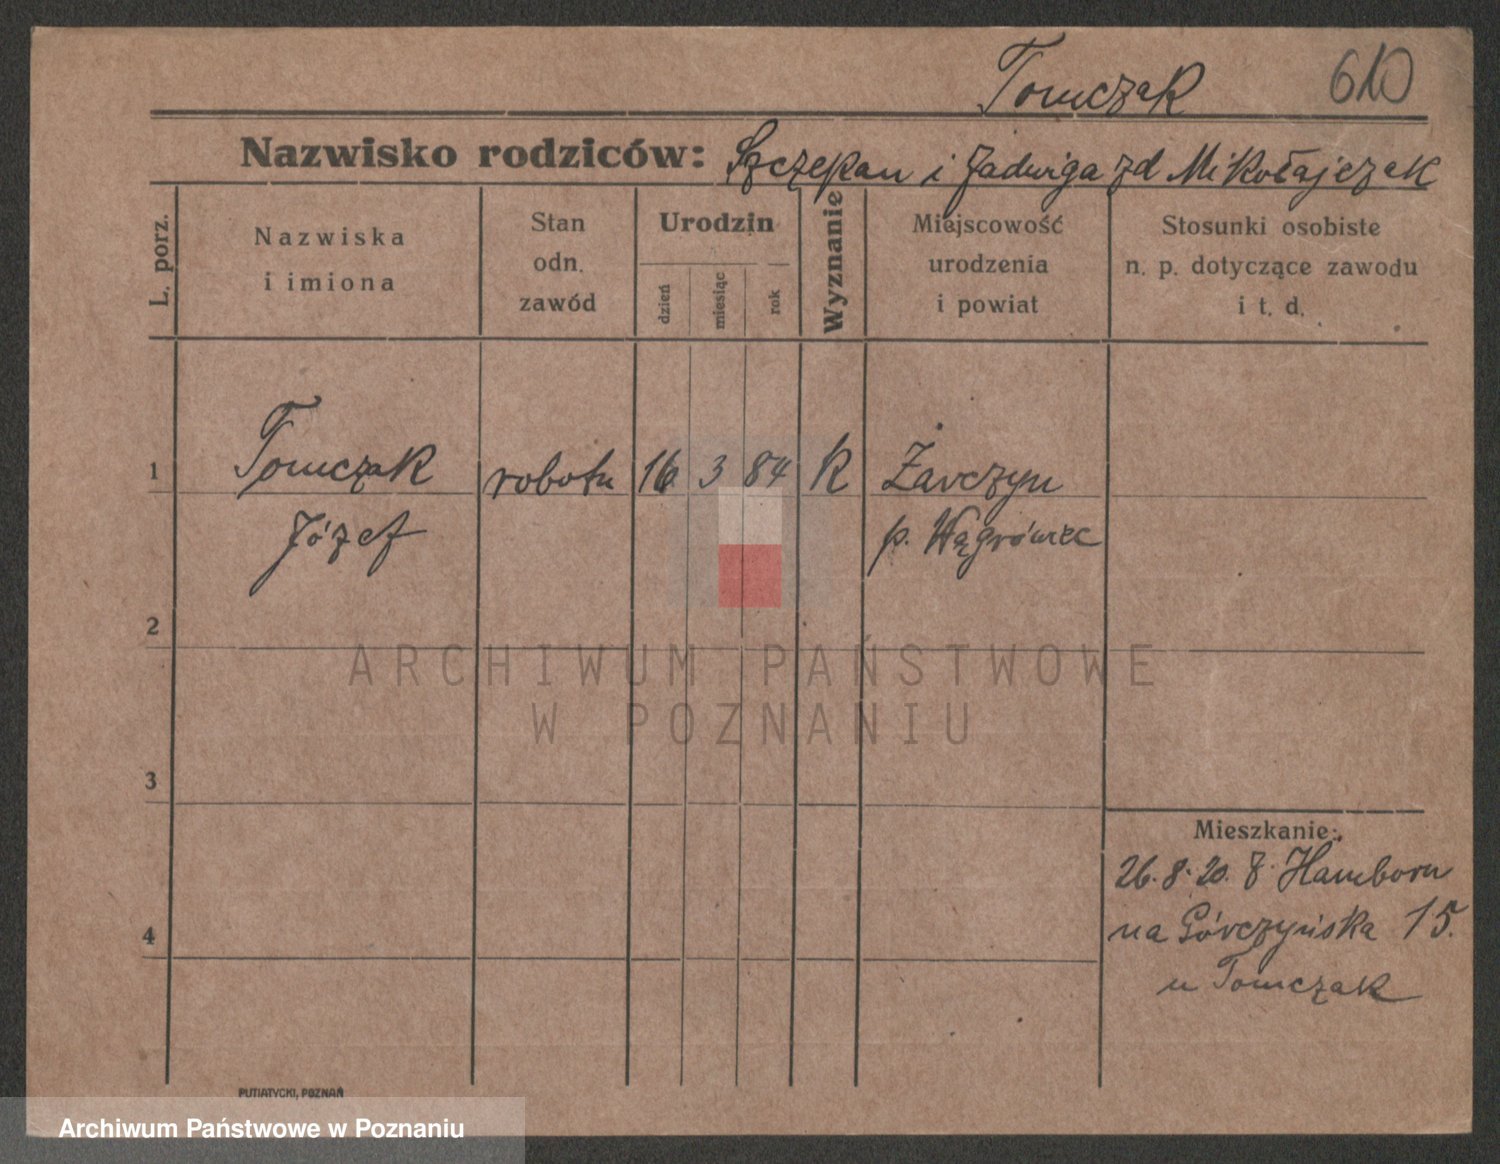 Tomczak 610
Nazwisko rodziców: Szczepan i Jadwiga zd Mikołajczak
L. porz.
Nazwiska
i imiona
Stan
odn.
zawód
Urodzin
dzień
miesiąc
rok
Wyznanie
Miejscowość
urodzenia
i powiat
Stosunki osobiste
n. p. dotyczące zawodu
i t. d.
1 Tomczak robotn 16 3 84 K Żarczyn
Józef p. Wągrówiec
2
3
4
Mieszkanie:
26.8.20. Z. Hamborn
na Górczyńska 15.
u Tomczak
PUTIATYCKI, POZNAŃ
ARCHIWUM PAŃSTWOWE
W POZNANIU
Archiwum Państwowe w Poznaniu